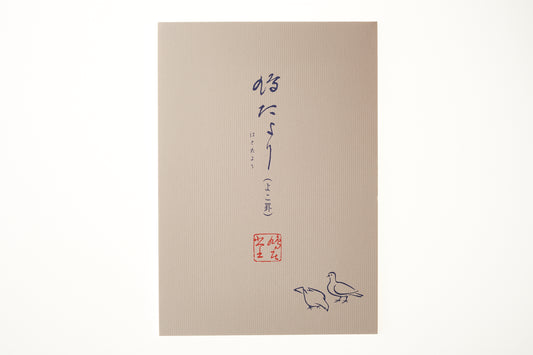 鳩だより
はとだより
(よこ罫)
鳩居堂